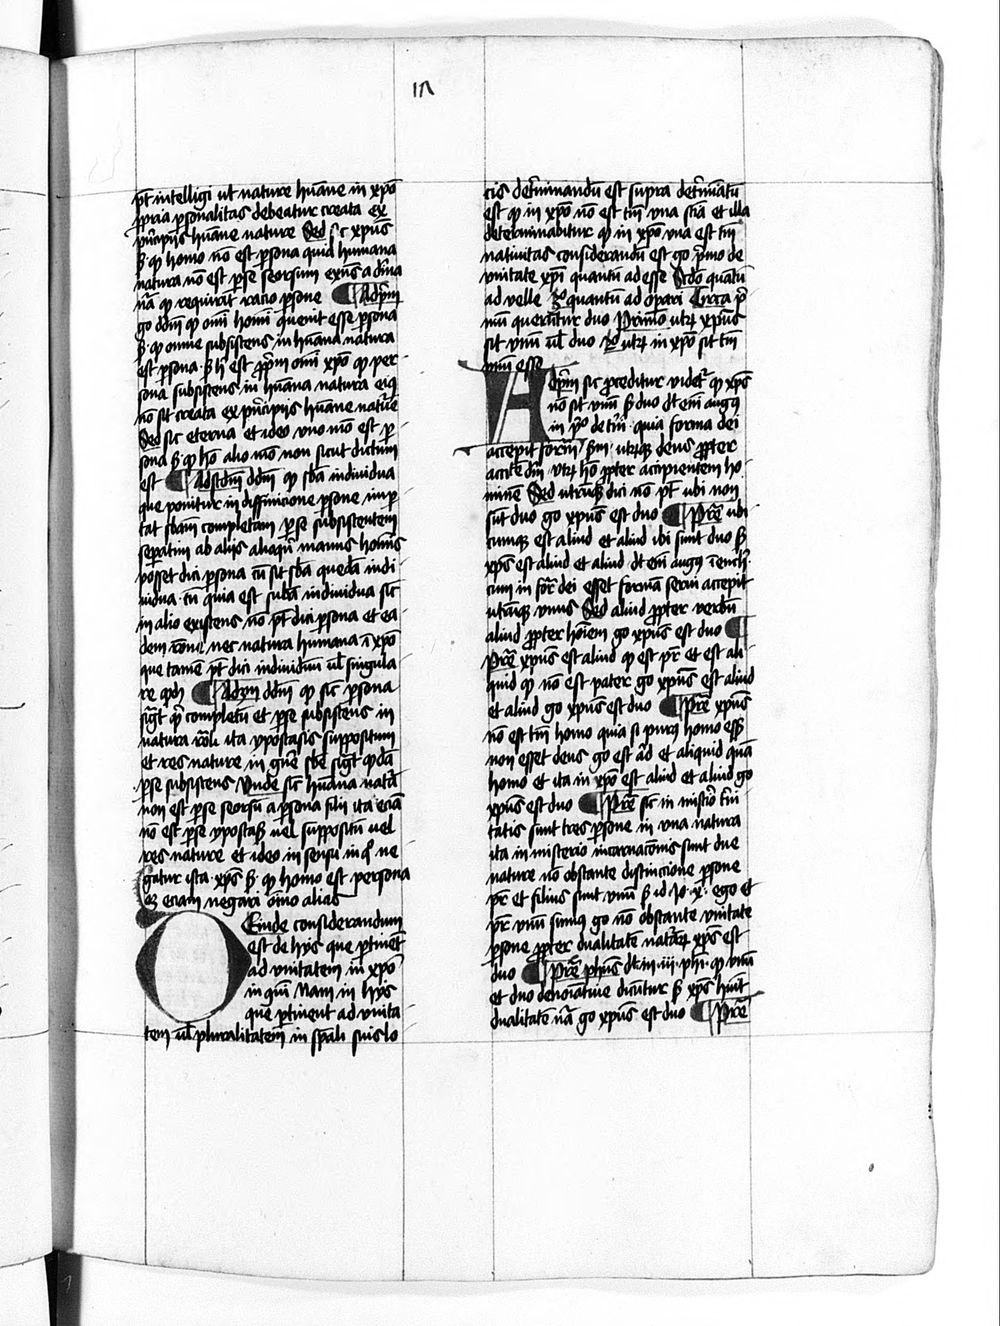 ın
p̄t intelligi ul̄ nature hūane in xp̄o
ꝓpria ꝑsonalitas debeatur creata ex
prīcipijs hūane nature Sed sic xpūs
ẜ ꝙ homo nō est ꝑsona quia humana
natura nō est ꝑ se seorsum exn̄s a diuīa
nā ꝙ requirit racio ꝑsone ¶ Ad p̄m
go dd̄m ꝙ omī homī ꝯuenit esse ꝑsona
ẜ ꝙ omne subsistens in hūana natura
est ꝑsona ẜ h̄ est ꝓpīm omī xp̄o ꝙ per
sona subsistens in hūana natura eiꝰ
nō sit creata ex prīcipijs hūane natūe
Sed sic eterna et ideo vno mō est ꝑ
sona ẜ ꝙ hō alio mō non sicut dictum
est ¶ Ad scdm̄ dd̄m ꝙ sb̄a individua
que ponitur in diffinicione ꝑsone imꝑ
tat sb̄am completam ꝑ se subsistentem
sepatim ab alijs alioqū manus homīs
posset dici ꝑsona cū sit sb̄a quedā indi
uidua tn̄ quia est sub̄a individua sic
in alio existens nō p̄t dici ꝑsona et ea
dem rōne nec natura humana ī xp̄o
que tamē p̄t dici indiuiduū ul̄ singula
re qd̄ ¶ Ad 3m dd̄m ꝙ sic ꝑsona
sigt̄ q̄ completū et ꝑ se subsistens in
natura rōli ita ypostasis suppositum
et res nature in gn̄e sb̄e sigt̄ qddā
ꝑ se subsistens Vnde sic hūana natā
non est ꝑ se seorsū a ꝑsona filii ita eciā
nō est ꝑ se ypostasꝭ uel suppositū uel
res nature et ideo in sensu in q̄ ne
gatur ista xp̄s ẜ ꝙ homo est persona
oꝫ eciam negari oīno alias
DEinde considerandum
est de hijs que ꝑtinēt
ad vnitatem in xp̄o
in quī Nam in hijs
que ꝑtinent ad vnita
tem ul̄ pluralitatem in sp̄ali suis lo
cis det̄minandū est supra det̄mīatū
est ꝙ in xp̄o nō est tm̄ vna sciā et illa
determinabitur ꝙ in xp̄o vna est tm̄
natiuitas considerandū est go p̄mo de
vnitate xp̄i quantū ad esse Scdo quātū
ad velle 3o quantū ad oꝑari Circa p̄
mū querūtur duo Primo utꝝ xpūs
sit vnū ul̄ duo 2o utꝝ in xp̄o sit tm̄
vnū esse
AD p̄m sic ꝓceditur videt̄ ꝙ xp̄s
nō sit vnū ẜ duo dt̄ eīm augꝰ
in pº de t̄ni quia forma dei
accepit formā ẜui utrūqꝫ deus ꝓpter
accipiētē dm̄ utꝝ hō ꝓpter accipientem ho
minē Sed utrūqꝫ dici nō p̄t ubi non
sūt duo go xpūs est duo ¶ Pret̄ ubi
cunqꝫ est aliud et aliud ibi sunt duo ẜ
xpūs est aliud et aliud dt̄ eīm augꝰ ī ench̄
cum in for̄ dei esset formā serui accepit
utrūqꝫ vnus Sed aliud ꝓpter verbū
aliud ꝓpter hoīem go xpūs est duo ¶
Pret̄ xpūs est aliud ꝙ est pr̄ et est ali
quid ꝙ nō est pater go xpūs est aliud
et aliud go xpūs est duo ¶ Pret̄ xpūs
nō est tm̄ homo quia si purꝰ homo ess̄
non esset deus go est a᷑d et aliquid quā
homo et ita in xp̄o est aliud et aliud go
xpūs est duo ¶ Pret̄ sic in mist̄io t̄ni
tatis sunt tres ꝑsone in vna natura
ita in misterio incarnacōnis sunt due
nature nō obstante distinctione ꝑsone
pr̄ et filius sunt vnū ẜ id Jo x ego et
pr̄ vnū sumꝰ go nō obstante vnitate
ꝑsone ꝓpter dualitatē natuꝝ xpūs est
duo ¶ Pret̄ phūs dt̄ in iii phi ꝙ vnū
et duo denoīatiue dicūtur ẜ xp̄s hūit
dualitatē nāꝝ go xpūs est duo ¶ Pret̄